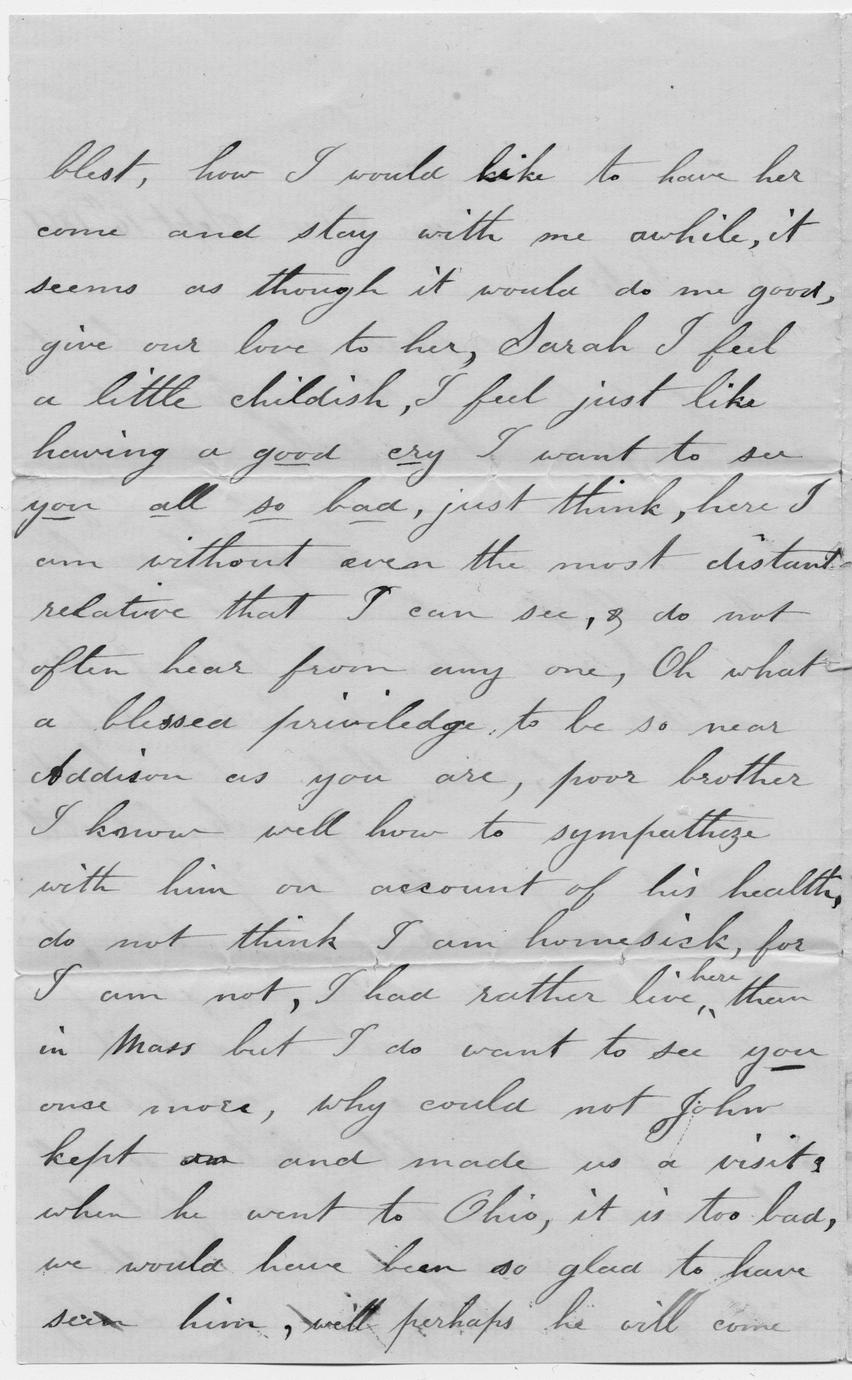 blest, how I would like to have her
come and stay with me awhile, it
seems as though it would do me good,
give our love to her, Sarah I feel
a little childish, I feel just like
having a good cry I want to see
you all so bad, just think, here I
am without even the most distant
relative that I can see, & do not
often hear from any one, Oh what
a blessed priviledge, to be so near
Addison as you are, poor brother
I know well how to sympathize
with him on account of his health,
do not think I am homesick, for
I am not, I had rather live here than
in Mass but I do want to see you
onse more, why could not John
kept on and made us a visit?
when he went to Ohio, it is too bad,
we would have been so glad to have
seen him, well perhaps he will come